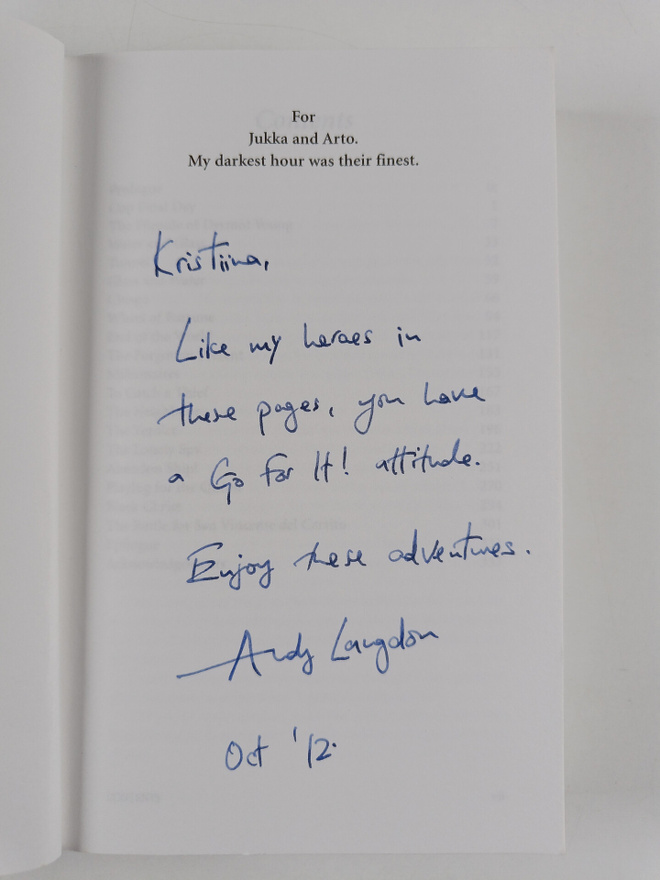 For
Jukka and Arto.
My darkest hour was their finest.
Kristiina,
Like my heroes in
these pages, you have
a Go For It! attitude.
Enjoy these adventures.
Andy Langdon
Oct '12.